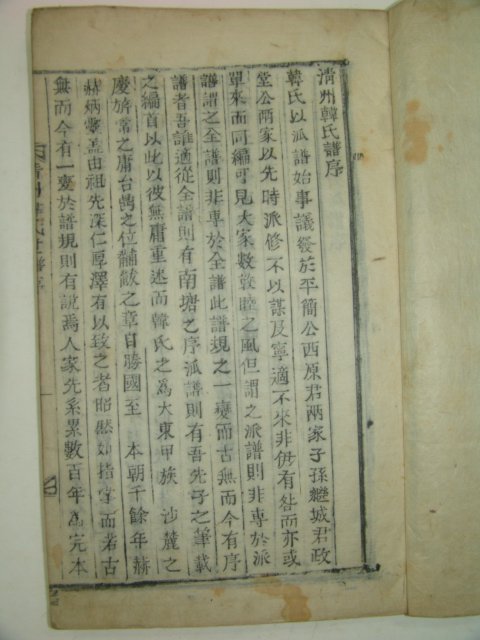 清州韓氏譜序
韓氏以派譜始事議發於平簡公西原君兩家子孫繼城君政
堂公兩家以先時派修不以謀及寧適不來非伊有咎而亦或
單來而同編可見大家數敦睦之風但謂之派譜則非專於派
譜謂之全譜則非專於全譜此譜規之一變而古無而今有序
譜者吾誰適從全譜則有南塘之序派譜則有吾先子之筆載
之編首以此以彼無庸重述而韓氏之為大東甲族沙麓之
慶旂常之庸台鼎之位黼黻之章自勝國至 本朝千餘年赫
赫炳靈盖由祖先深仁厚澤有以致之者昭然如指掌而若古
無而今有一變於譜規則有說焉人家先系累數百年為完本